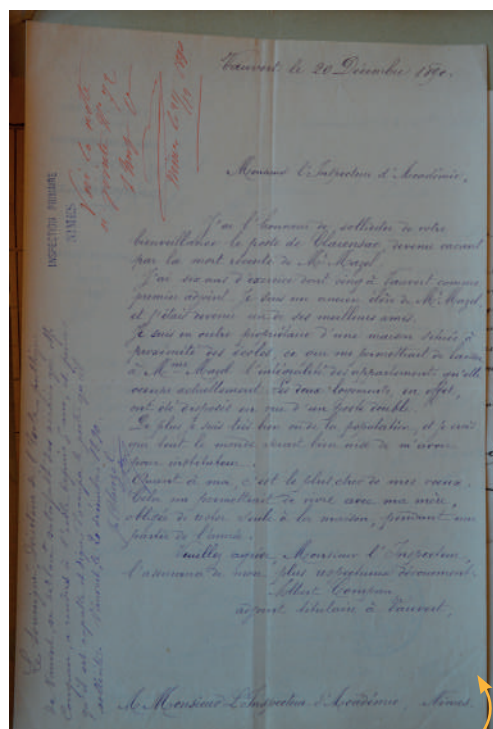 Vauvert le 20 Décembre 1890.
Monsieur l'Inspecteur d'Académie,
J'ai l'honneur de solliciter de votre
bienveillance le poste de Clarensac, devenu vacant
par la mort récente de Mr Mazel.
J'ai six ans d'exercice dont cinq à Vauvert comme
premier adjoint. Je suis un ancien élève de Mr Mazel
et j'étais devenu un de ses meilleurs amis.
Je suis en outre propriétaire d'une maison située à
proximité des écoles, ce qui me permettrait de laisser
à Mme Mazel l'intégralité des appartements qu'elle
occupe actuellement. Les deux logements, en effet,
ont été disposés en vue d'un poste double.
De plus je suis très bien vu de la population, et je crois
que tout le monde serait bien aise de m'avoir
pour instituteur.
Quant à moi, c'est le plus cher de mes voeux.
Cela me permettrait de vivre avec ma mère,
obligée de rester seule à la maison, pendant une
partie de l'année.
Veuillez agréer, Monsieur l'Inspecteur,
l'assurance de mon plus respectueux dévouement.
Albert Compan
adjoint titulaire à Vauvert.
A Monsieur L'Inspecteur d'Académie, Nîmes.
INSPECTION PRIMAIRE
NIMES
Voir la note
Nîmes le
Le soussigné, Directeur de l'école publique
de Vauvert, se déclare satisfait des services que Mr
Compan a rendus à
Vauvert, le 20 décembre 1890.